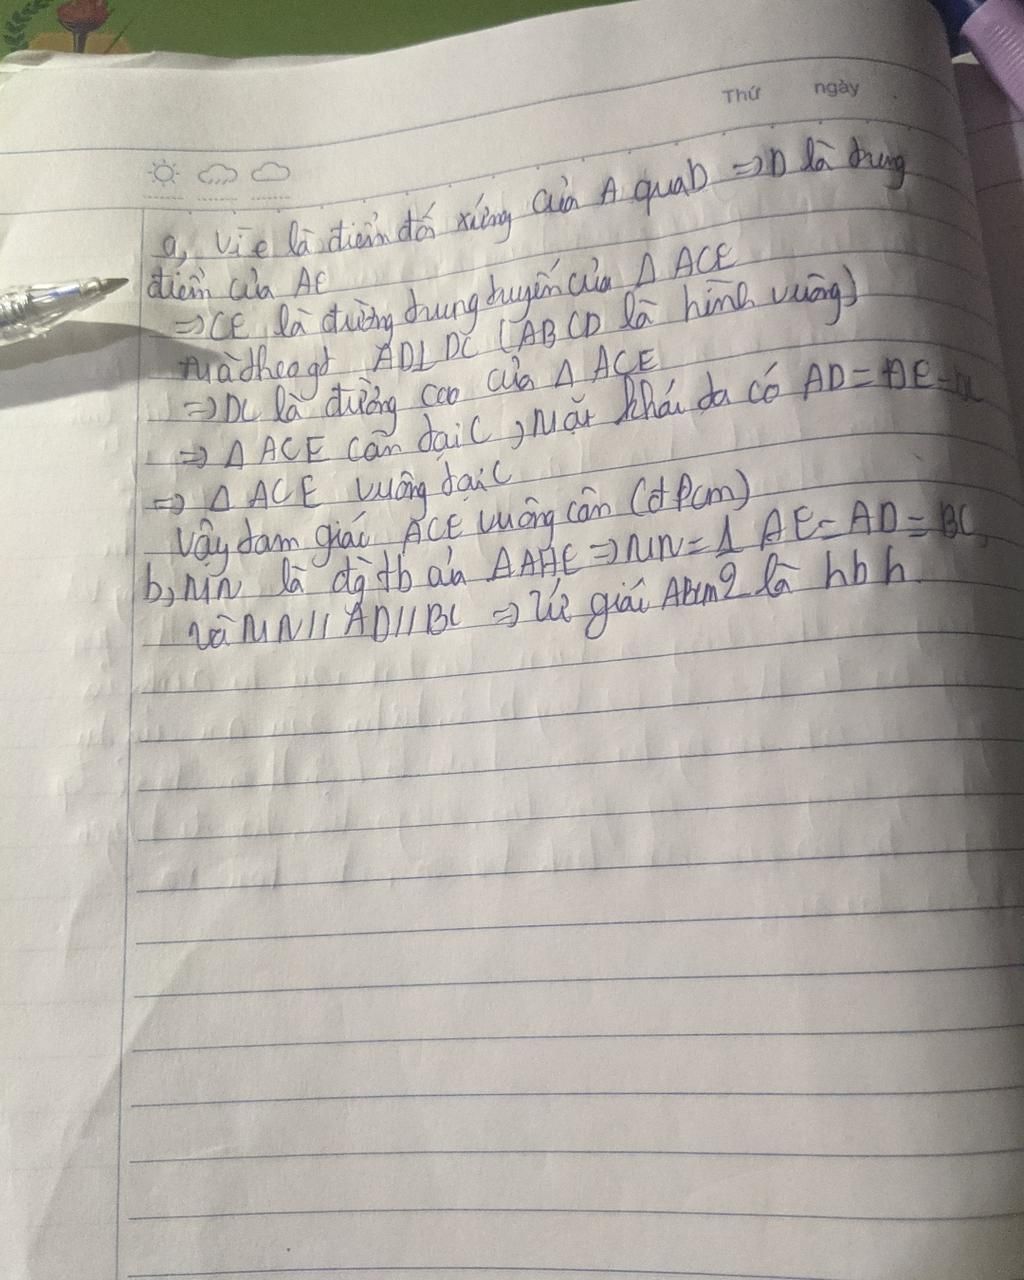 Thứ ngày
a, Vì e là điểm đối xứng của A qua D => D là trung
điểm của AE
=> CE là đường trung tuyến của Δ ACE
mà theo gt AD⊥ DC (ABCD là hình vuông)
=> DC là đường cao của Δ ACE
=> Δ ACE cân tại C, Mặt khái ta có AD = DE =
=> Δ ACE vuông tại C
Vậy tam giác ACE vuông cân (đpcm)
b, MN là đg tb của AAHE => MN = 1 AE = AD = BC,
và MN // AD // BC => Tứ giác là hbh